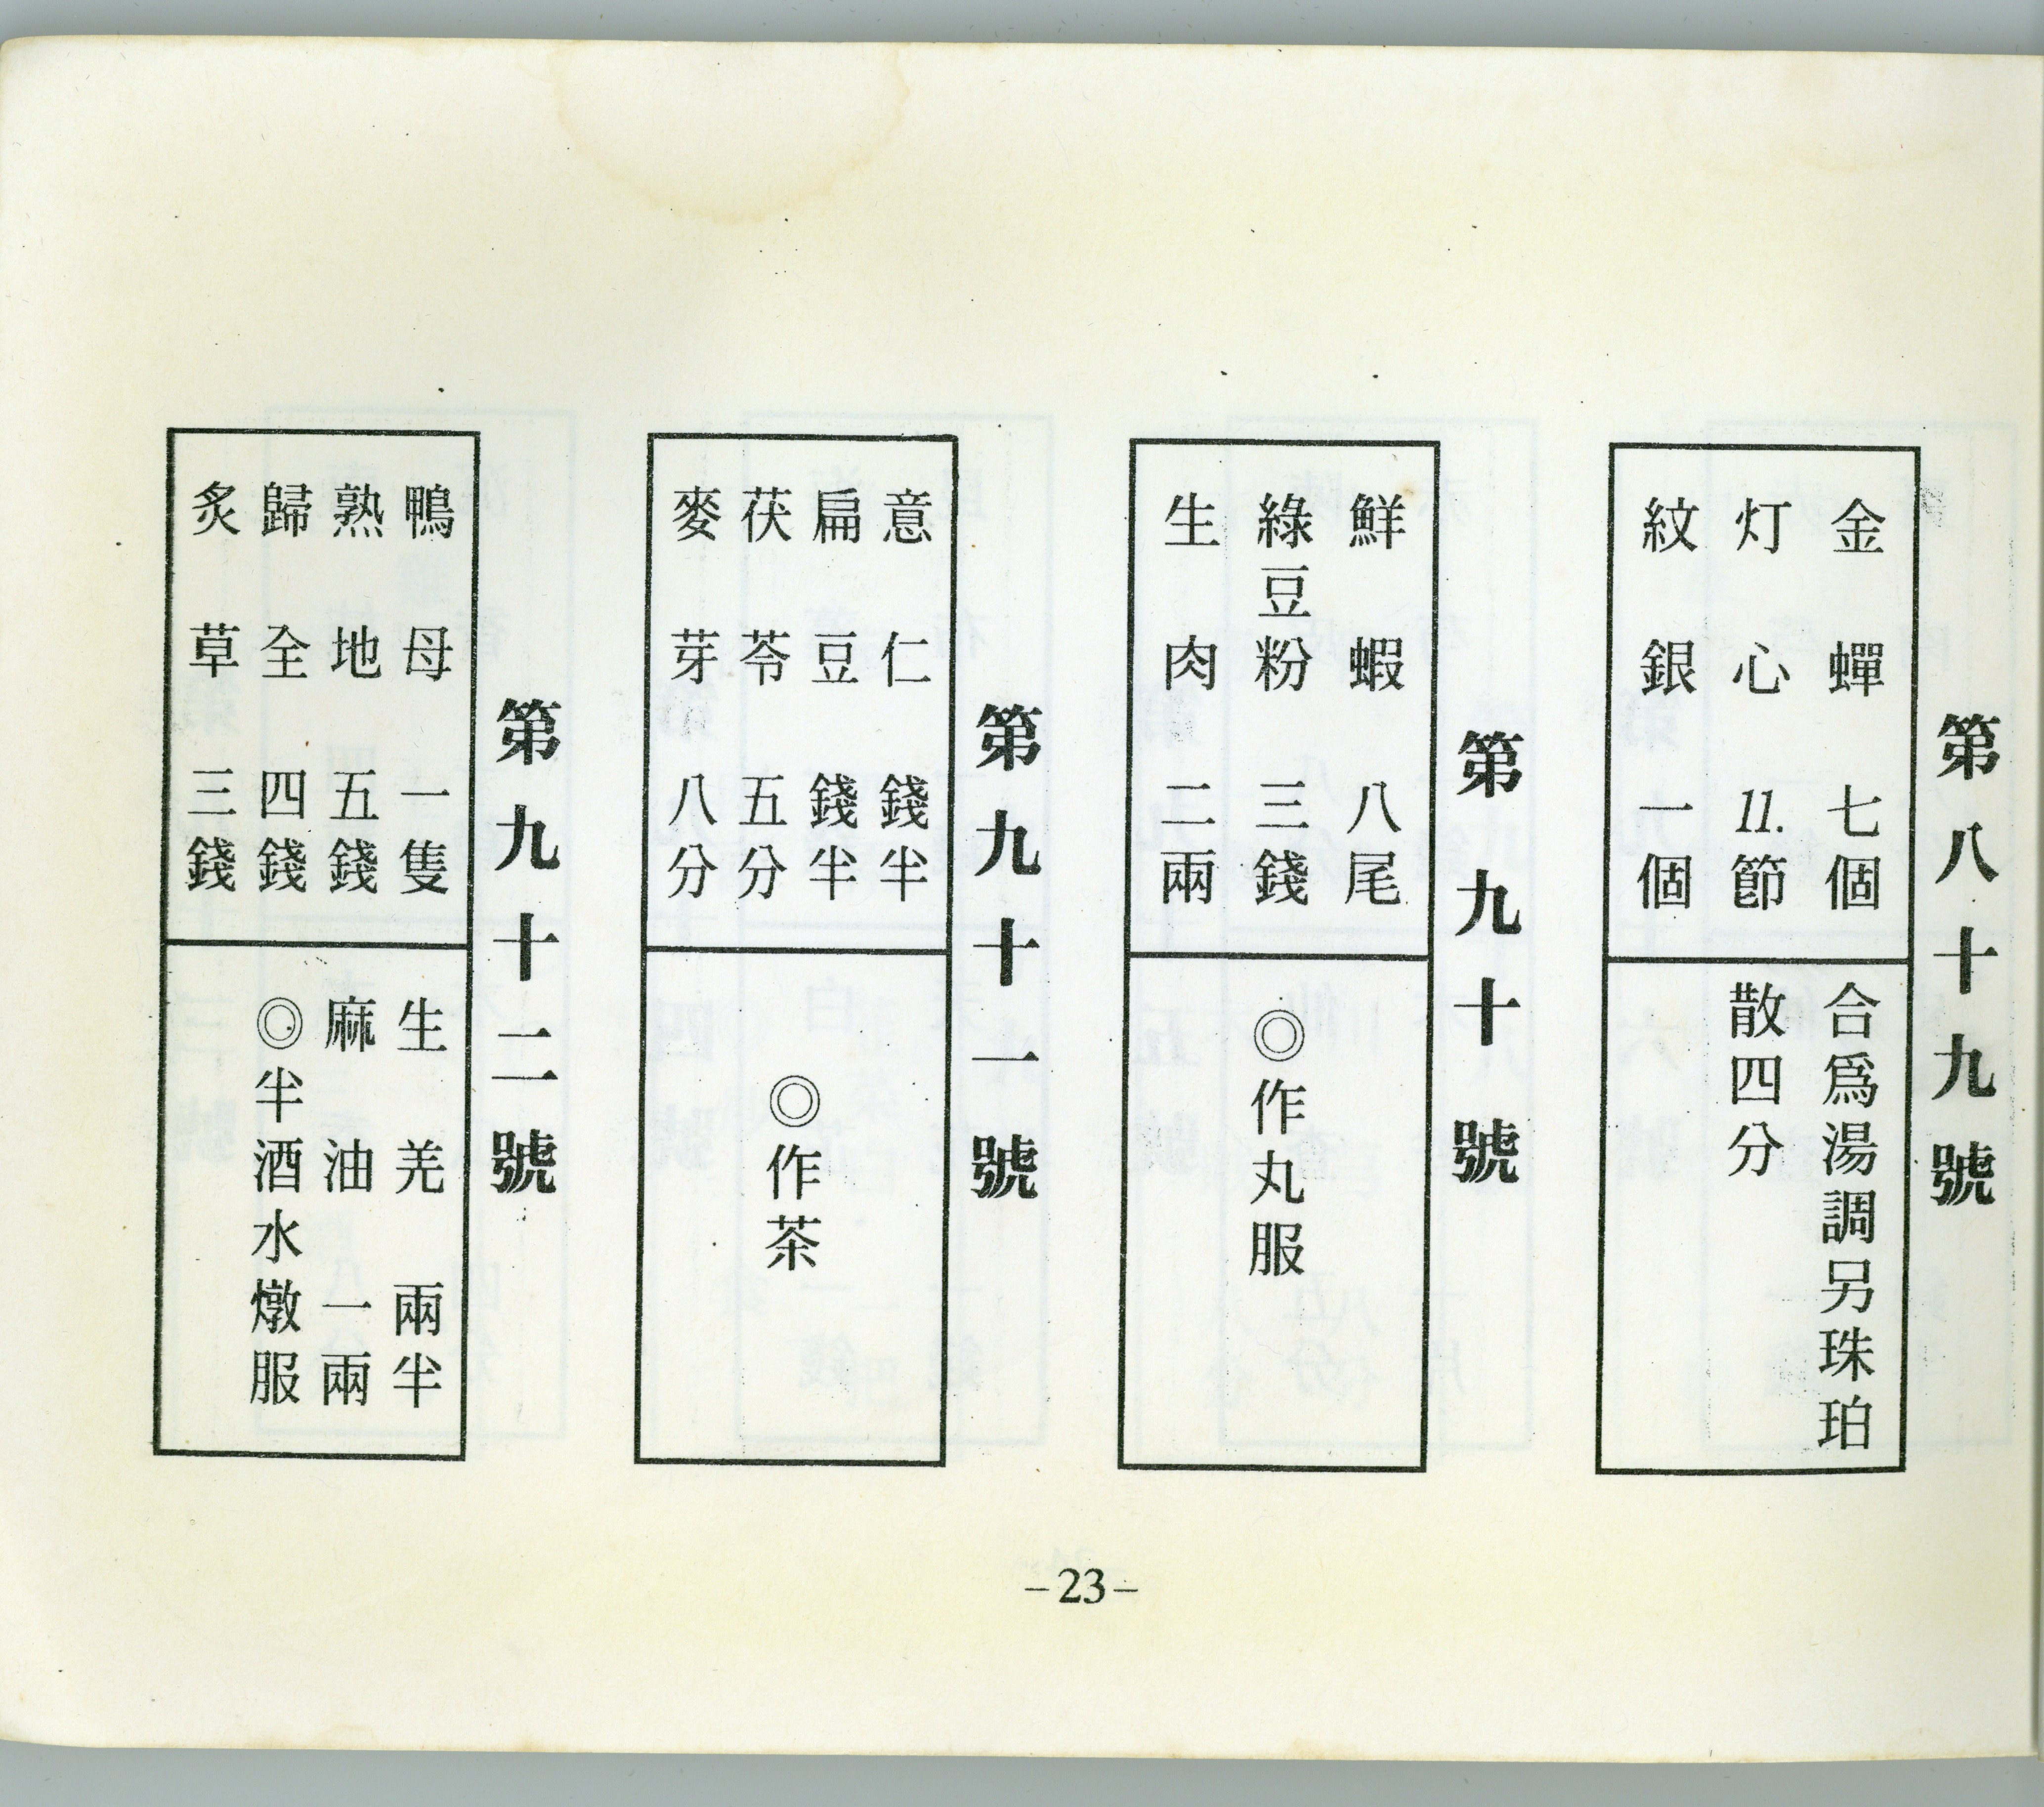 第八十九號
金蟬七個
灯心11.節
紋銀一個
合爲湯調另珠珀
散四分
第九十號
鮮蝦八尾
綠豆粉三錢
生肉二兩
◎作丸服
第九十一號
意仁錢半
扁豆錢半
茯苓五分
麥芽八分
◎作茶
第九十二號
鴨母一隻
熟地五錢
歸全四錢
炙草三錢
生羌兩半
麻油一兩
◎半酒水燉服
–23–